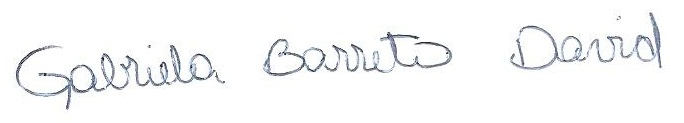 Gabriela Barreto David